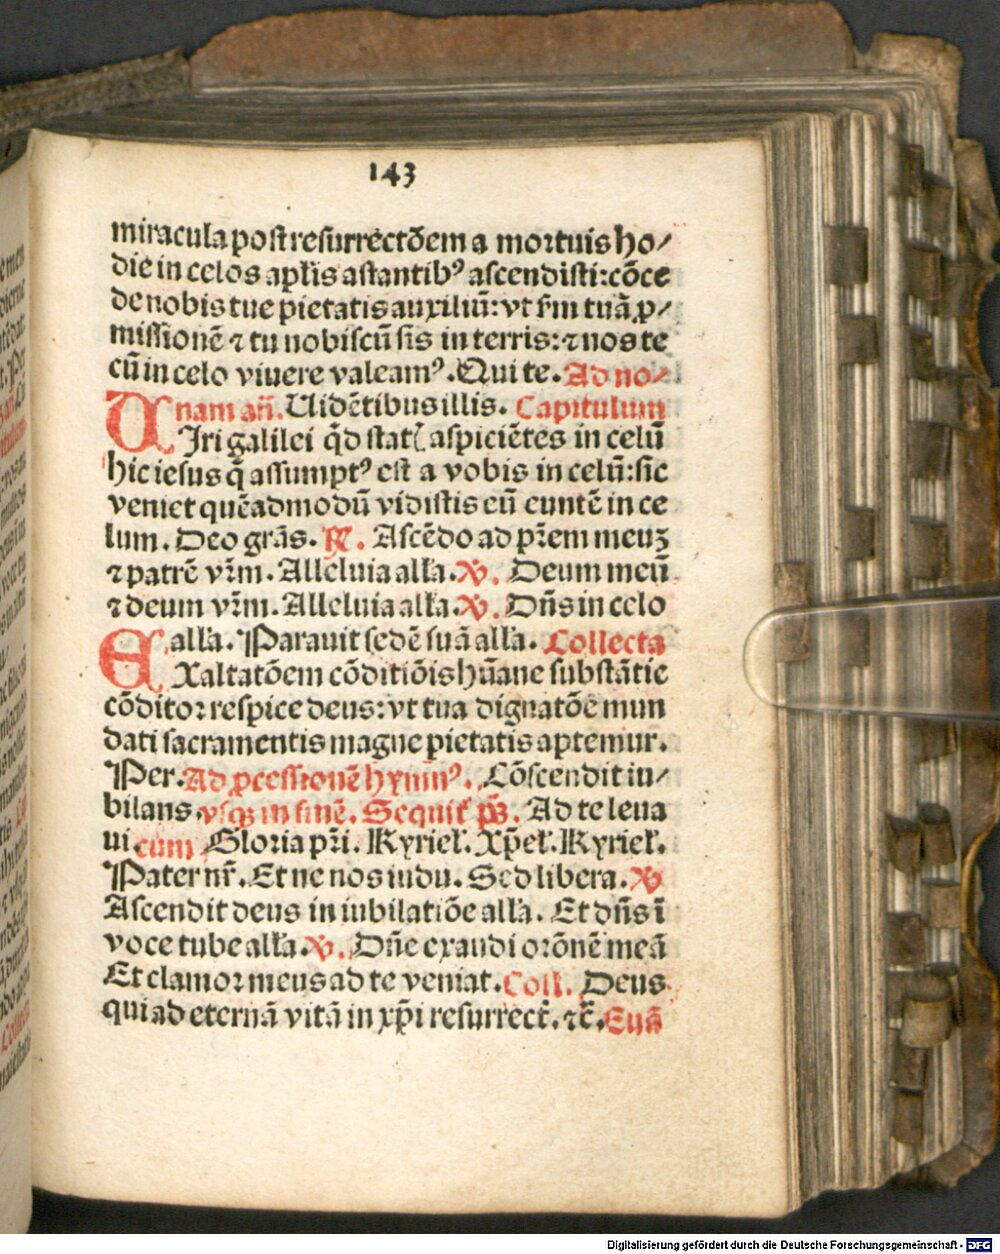 143
miracula post resurrectōem a mortuis ho/
die in celos apłis astantibꝰ ascendisti: cōce
de nobis tue pietatis auxiliū: vt fm tuā ꝓ/
missionē ⁊ tu nobiscū sis in terris: ⁊ nos te
cū in celo viuere valeamꝰ. Qui te. Ad no/
nam añ. Uidētibus illis. Capitulum
UIri galilei qd stat aspiciētes in celū
hic iesus q̄ assumptꝰ est a vobis in celū: sic
veniet quēadmodū vidistis eū euntē in ce
lum. Deo grās. ℟. Ascēdo ad pr̄em meuꝫ
⁊ patrē vr̄m. Alleluia alła. ℣. Deum meū
⁊ deum vr̄m. Alleluia alła. ℣. Dñs in celo
alła. Parauit sedē suā alła. Collecta
EXaltatōem cōditiōis hūane substātie
cōditor respice deus: vt tua dignatōe mun
dati sacramentis magne pietatis aptemur.
Per. Ad ꝓcessionē hymnꝰ. Cōscendit iu/
bilans. vsqꝫ in finē. Sequit ps̄. Ad te leua
ui. cum Gloria pr̄i. Kyriel. Xp̄el. Kyriel.
Pater nr̄. Et ne nos indu. Sed libera. ℣
Ascendit deus in iubilatiōe alła. Et dñs ī
voce tube alła. ℣. Dñe exaudi orōnē meā
Et clamor meus ad te veniat. Coll. Deus
qui ad eternā vitā in xp̄i resurrect. ⁊c̄. Euā
Digitalisierung gefördert durch die Deutsche Forschungsgemeinschaft - DFG